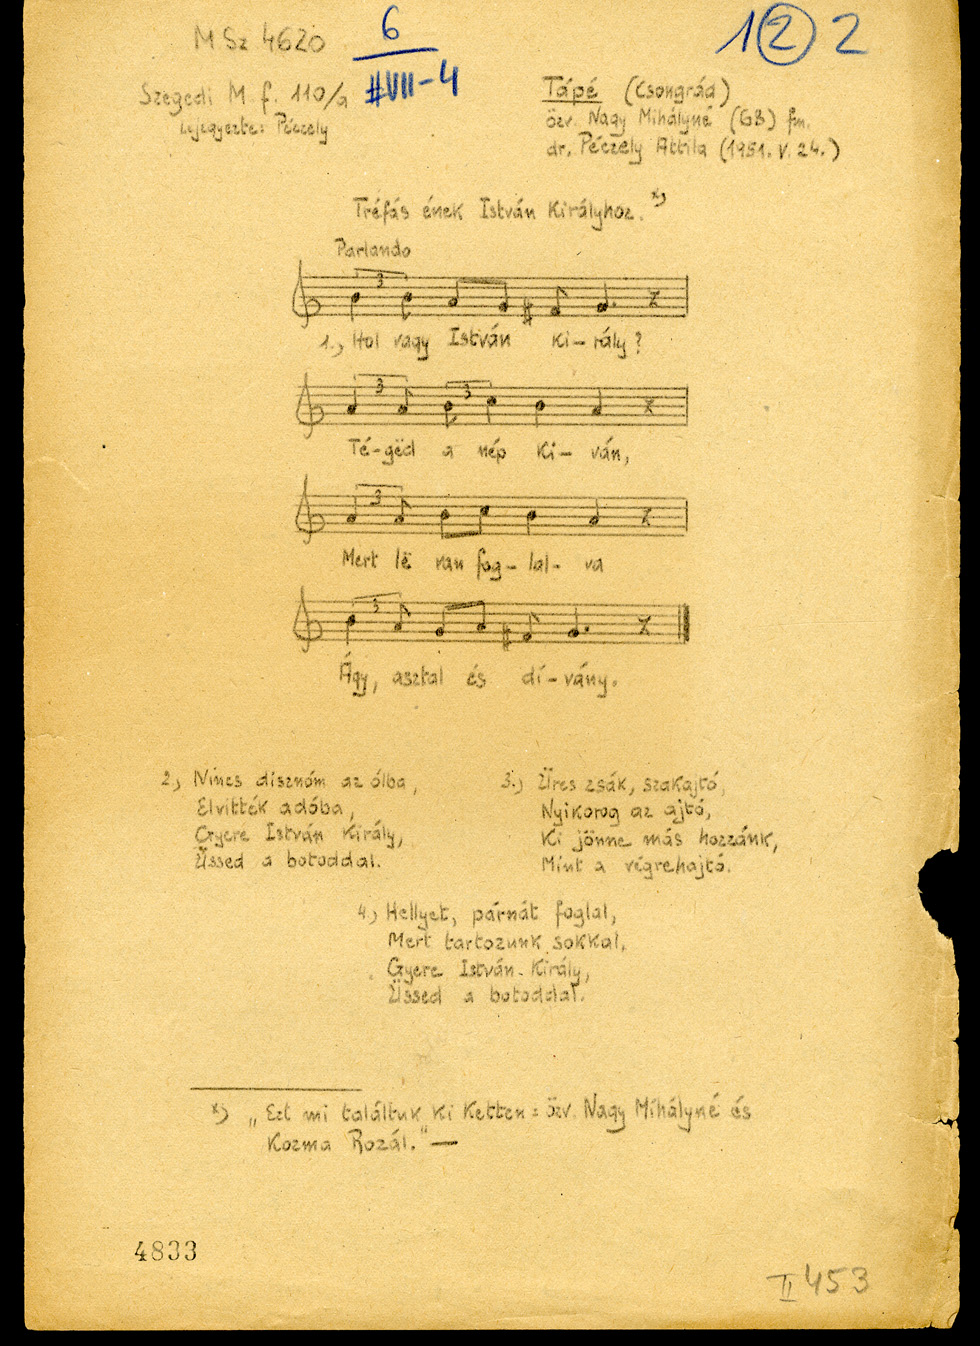 M Sz 4620
6
#VII-4
1 2 2
Szegedi M. f. 110/a
Lejegyezte: Péczely
Tápé (Csongrád)
özv. Nagy Mihályné (63) fm.
dr. Péczely Attila (1951. V. 24.)
Tréfás ének István Királyhoz. x)
Parlando
3
1., Hol vagy István Ki-rály?
3 3
Té-gëd a nép Ki-ván,
3
Mert lë van fog-lal-va
3
Ágy, asztal és dí-vány.
2., Nincs disznóm az ólba,
Elvitték adóba,
Gyere István Király,
Üssed a botoddal.
3.) Üres zsák, szakajtó,
Nyikorog az ajtó,
Ki jönne más hozzánk,
Mint a végrehajtó.
4.) Hellyet, párnát foglal,
Mert tartozunk sokkal,
Gyere István Király,
Üssed a botoddal.
x) „Ezt mi találtuk ki Ketten = özv. Nagy Mihályné és
Kozma Rozál." —
4833
II 453